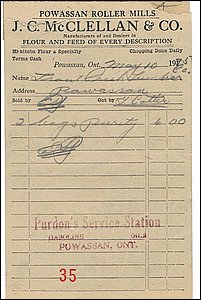 POWASSAN ROLLER MILLS
J. C. McCLELLAN & CO.
Manufacturers of and Dealers in
FLOUR AND FEED OF EVERY DESCRIPTION
Manitoba Flour a Speciality Chopping Done Daily
Terms Cash
Powassan, Ont., May 10 19
Name Lumber Co.
Address Powassan
Sold by Got by
2 bags Purity 6.00
Purdon's Service Station
GASOLINE OILS
POWASSAN, ONT.
35